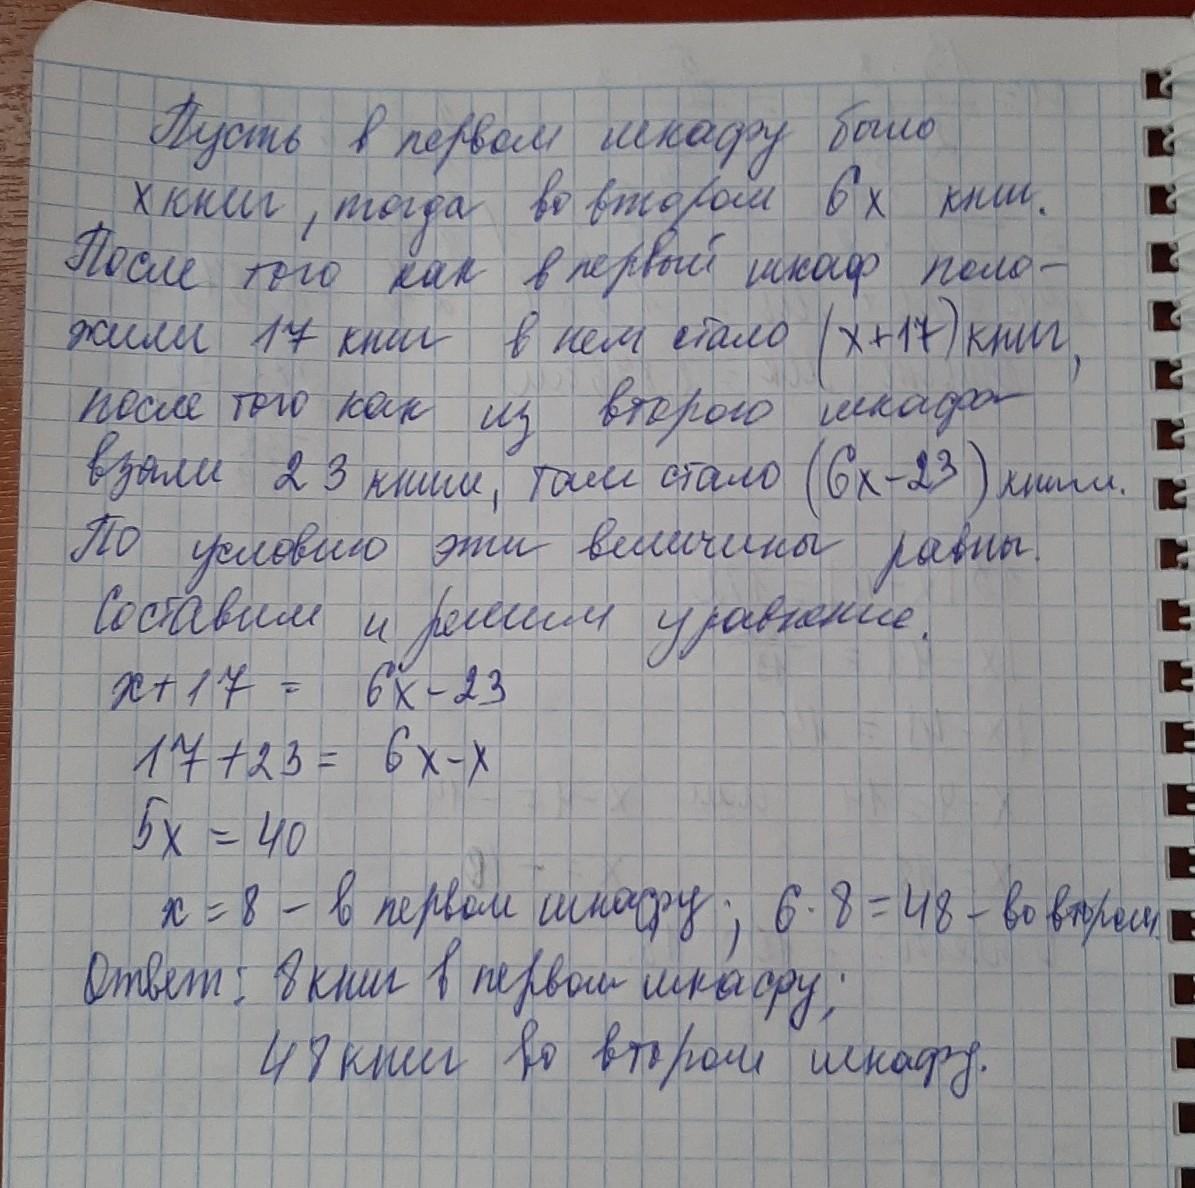 Пусть в первом шкафу было
x книг, тогда во втором 6x книг.
После того как в первый шкаф поло-
жили 17 книг в нем стало (x+17) книг,
после того как из второго шкафа
взяли 23 книги, там стало (6x-23) книги.
По условию эти величины равны.
Составим и решим уравнение.
x+17 = 6x-23
17+23= 6x-x
5x = 40
x = 8 - в первом шкафу; 6·8=48 - во втором.
Ответ: 8 книг в первом шкафу;
48 книг во втором шкафу.